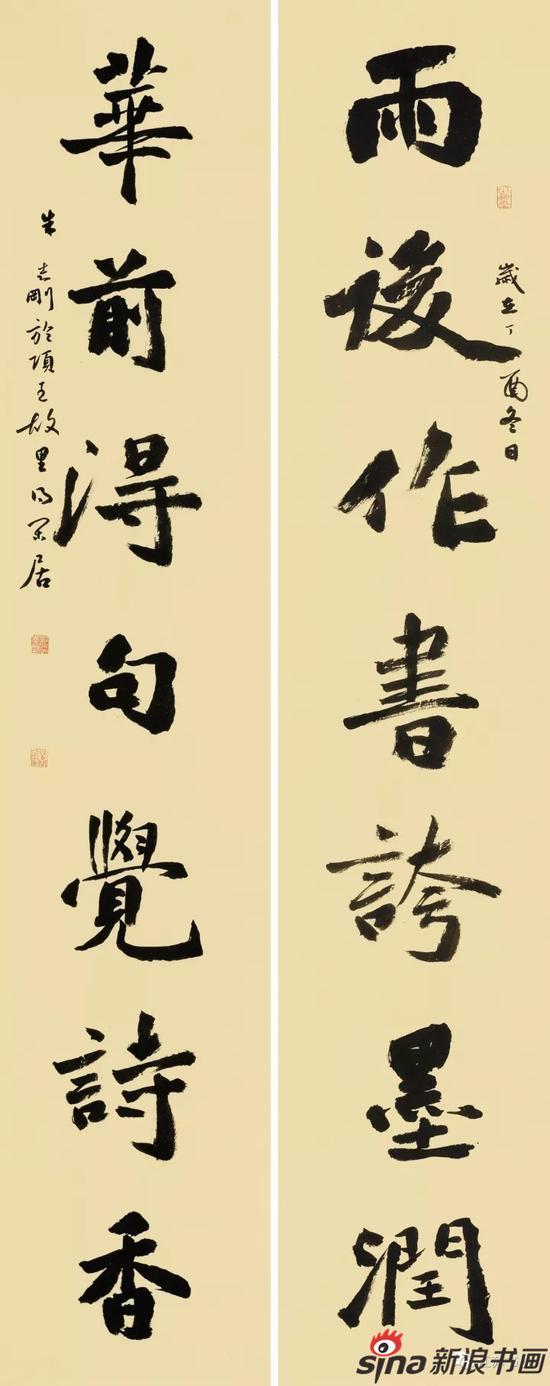 雨後作書誇墨潤
歲在丁酉冬日
華前得句覺詩香
朱志剛於項王故里得閑居
sina新浪书画